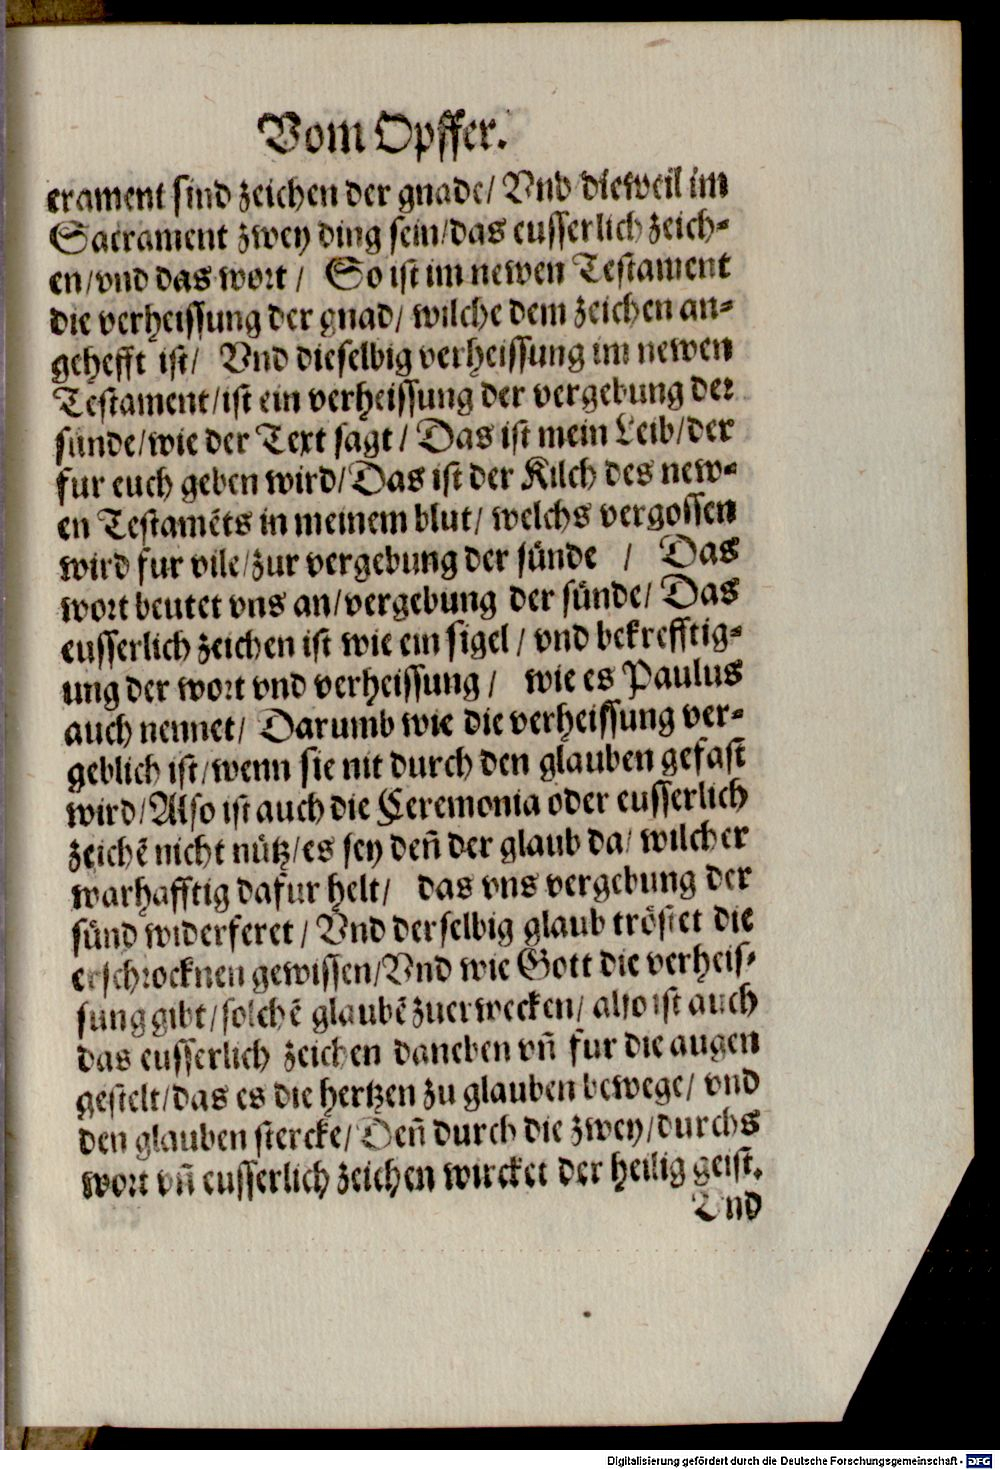 Vom Opffer.
crament sind zeichen der gnade/ Vnd dieweil im
Sacrament zwey ding sein/das eusserlich zeich-
en/vnd das wort / So ist im newen Testament
die verheissung der gnad/ wilche dem zeichen an-
gehefft ist/ Vnd dieselbig verheissung im newen
Testament/ist ein verheissung der vergebung der
sunde/wie der Text sagt / Das ist mein Leib/der
fur euch geben wird/Das ist der Kilch des new-
en Testamēts in meinem blut/ welchs vergossen
wird fur vile/zur vergebung der sünde / Das
wort beutet vns an/vergebung der sünde/ Das
eusserlich zeichen ist wie ein sigel / vnd bekrefftig-
ung der wort vnd verheissung / wie es Paulus
auch nennet/ Darumb wie die verheissung ver-
geblich ist/wenn sie nit durch den glauben gefast
wird/Also ist auch die Ceremonia oder eusserlich
zeichē nicht nütz/es sey deñ der glaub da/ wilcher
warhafftig dafur helt/ das vns vergebung der
sünd widerferet / Vnd derselbig glaub tröstet die
erschrocknen gewissen/Vnd wie Gott die verheis-
sung gibt/solchē glaubē zuerwecken/ also ist auch
das eusserlich zeichen daneben vñ fur die augen
gestelt/das es die hertzen zu glauben bewege/ vnd
den glauben stercke/ Deñ durch die zwey/durchs
wort vñ eusserlich zeichen wircket der heilig geist.
Vnd
Digitalisierung gefördert durch die Deutsche Forschungsgemeinschaft - DFG